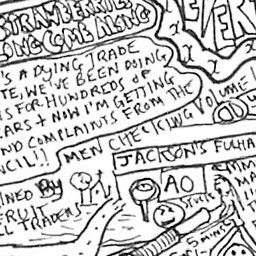 STRAWBERRIES
LONG COME ALONG
NEVER
'S A DYING TRADE
TE, WE'VE BEEN DOING
IS FOR HUNDREDS OF
EARS + NOW I'M GETTING
ND COMPLAINTS FROM THE
NCIL!!
MEN CHECKING VOLUME!
JACKSON'S FULHA
AO
INED BY
FRUIT
EL TRADERS
STUCK
5 MINS